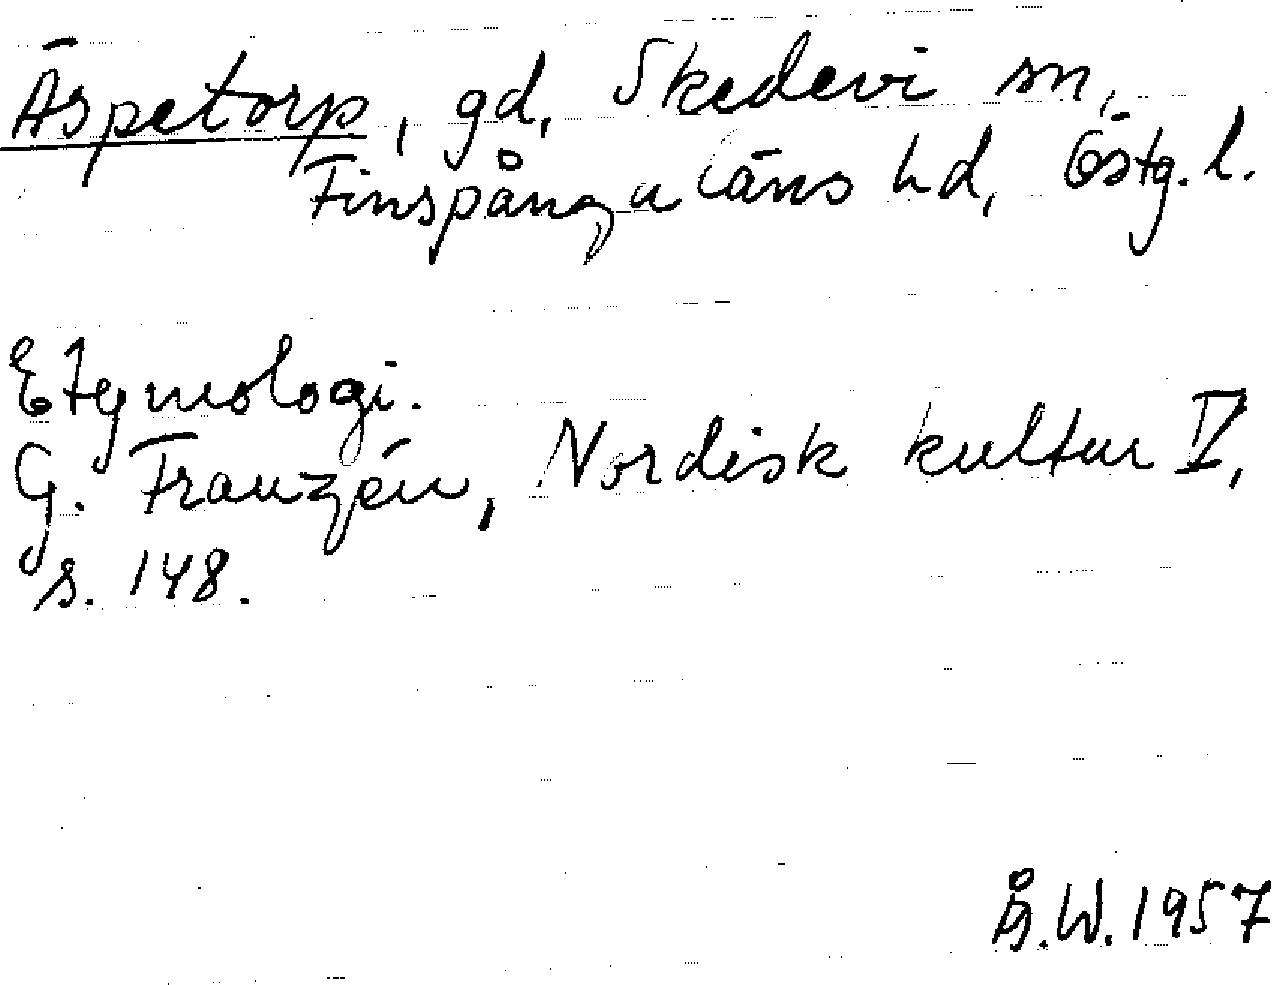 Äspetorp, gd, Skedevi sn,
Finspånga läns hd, Östg. l.
Etymologi.
G. Franzén, Nordisk kultur V,
s. 148.
Å.W. 1957